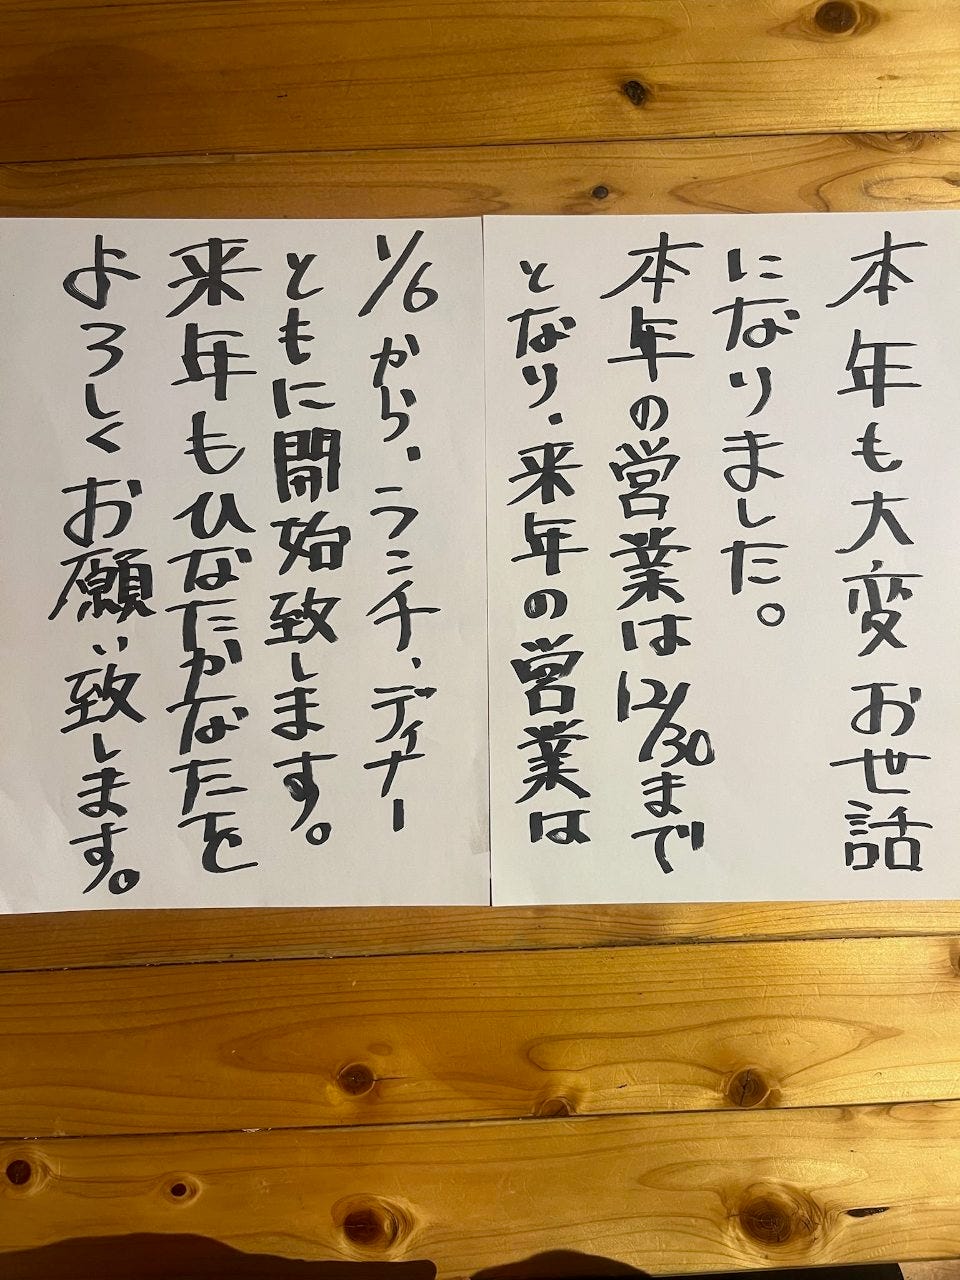 本年も大変お世話
になりました。
本年の営業は12/30まで
となり、来年の営業は
1/6から、ランチ、ディナー
ともに開始致します。
来年もひなたかなたを
よろしくお願い致します。